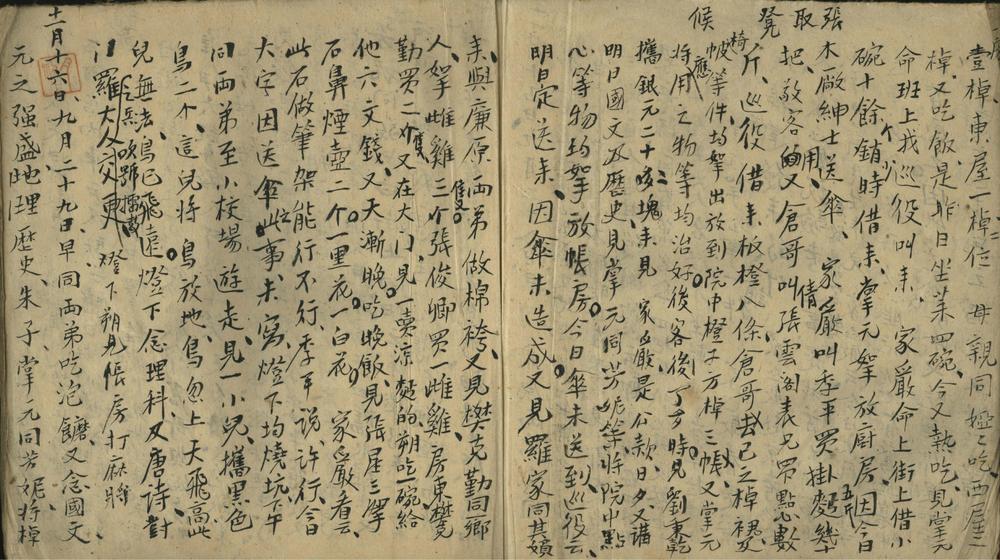 張取凳候
壹棹東屋一棹位二母親同婭之吃西屋三
棹又吃飯是昨日坐菜四碗今又熱吃見掌元
命班上找巡役叫来家嚴命上街上借小
碗十餘個銷時借来掌元拏放廚房因今日
木厰紳士送傘家嚴叫季平買掛麵幾十
把敬客用又倉哥叫張雲閣表兄帶點心數
斤巡役借来板櫈八條倉哥去己之棹裙
帔等件均拏出放到院中櫈子方棹三帳又掌元
將應用之物等均治好後客後丁歹時見劉秉乾
攜銀元二十塊来見家嚴是公款日夕又講
明日國文及歷史見掌元同芳妮等將院中點
心等物均拏放帳房今日傘未送到巡役云
明日定送来因傘未造成又見羅家同其嬪
来與廉原兩弟做棉袴又見樊克勤同鄉
人拏雌雞三隻張俊卿買一雌雞房東樊
勤買二隻又在大门見一賣凉麵的朔吃一碗給
他六文錢又天漸晚吃晚飯見張星三攜
石鼻煙壺二个一里花一白花家嚴看云
此石做筆架能行不行季平說許行今日
大字因送傘此事未寫燈下均燒坑下午
同兩弟至小校場遊走見一小兒攜黑色
鳥二个這兒將鳥放地鳥忽上天飛高此
兒無法鳥已飛遠燈下念理科及唐詩對
门羅大人交更燈下朔見帳房打麻將
十一月十六日九月二十九日早同兩弟吃泡饝又念國文
元之强盛地理歷史朱子掌元同芳妮將棹